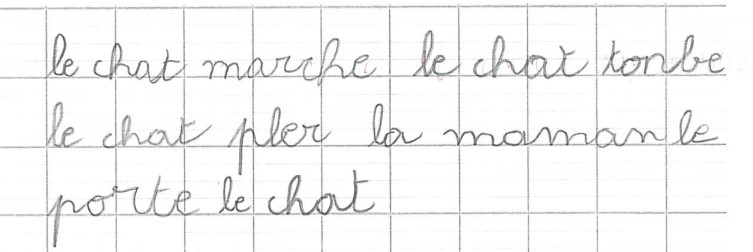 le chat marche le chat tonbe
le chat pler la maman le
porte le chat